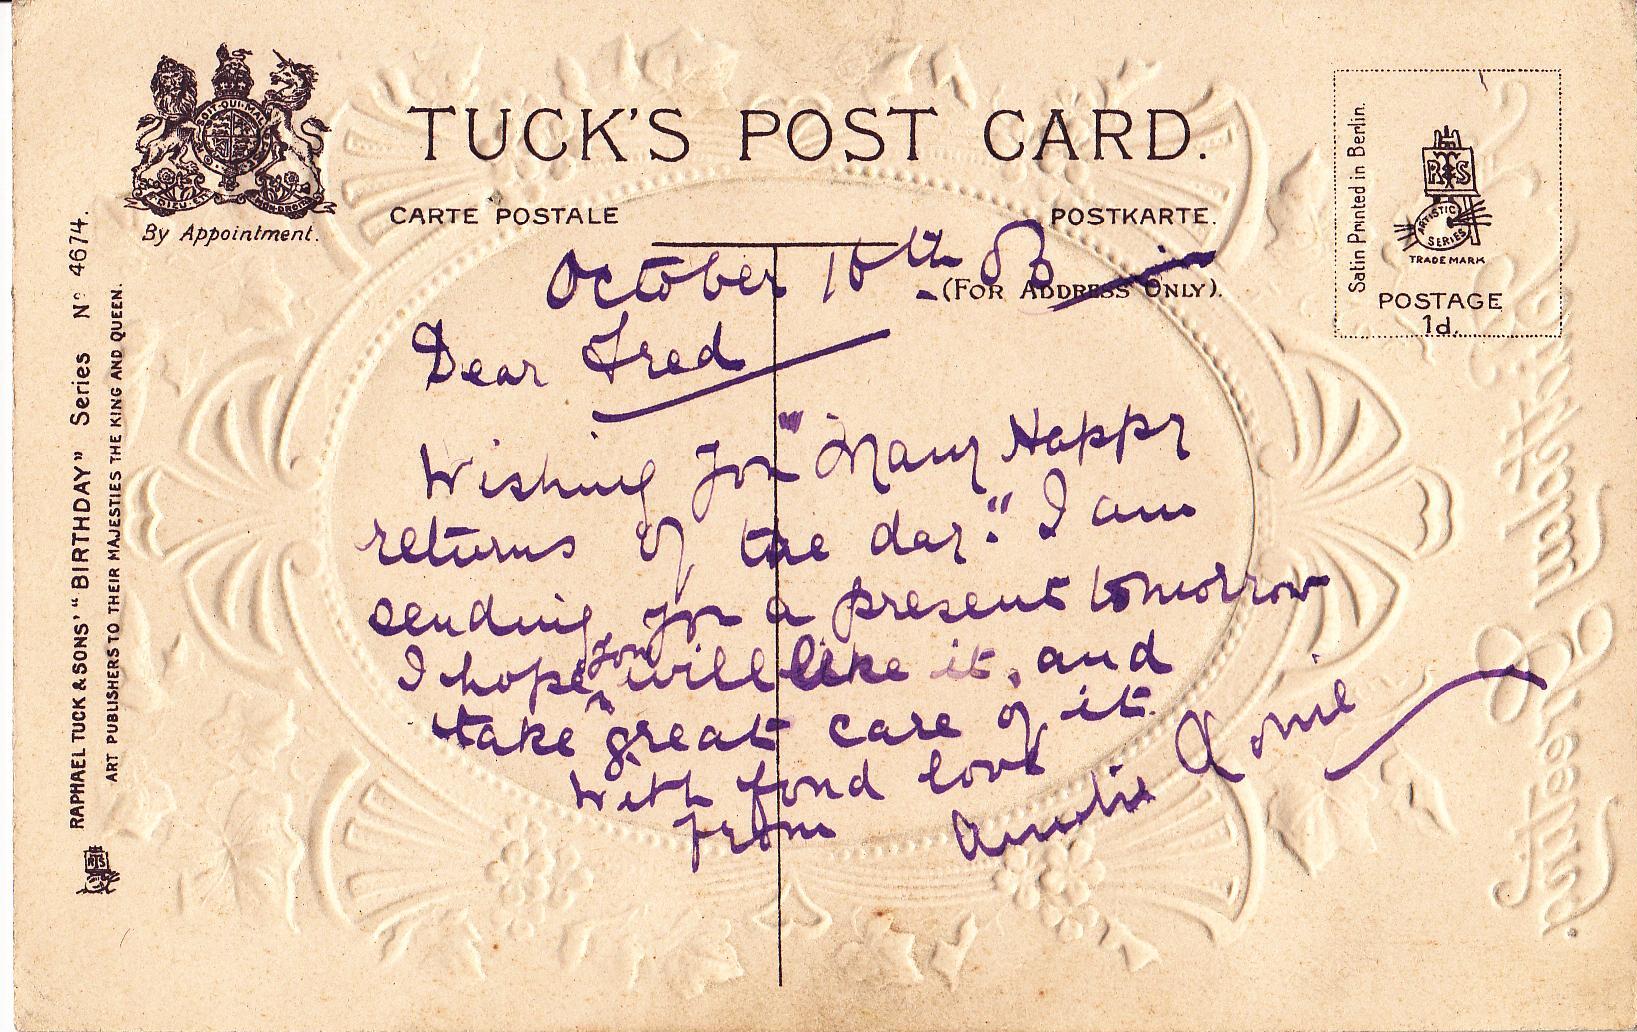 TUCK'S POST CARD.
CARTE POSTALE
POSTKARTE.
(FOR ADDRESS ONLY).
By Appointment.
SOIT QUI MAL
DIEU ET MON DROIT
RAPHAEL TUCK & SONS' "BIRTHDAY" Series Nº 4674.
ART PUBLISHERS TO THEIR MAJESTIES THE KING AND QUEEN.
RTS
Satin Printed in Berlin.
RTS
ARTISTIC
SERIES
TRADE MARK
POSTAGE
1d.
October 16th 08
Dear Fred
Wishing you "Many Happy
returns of the day." I am
sending you a present tomorrow
I hope you will like it, and
take great care of it.
With fond love
from Auntie